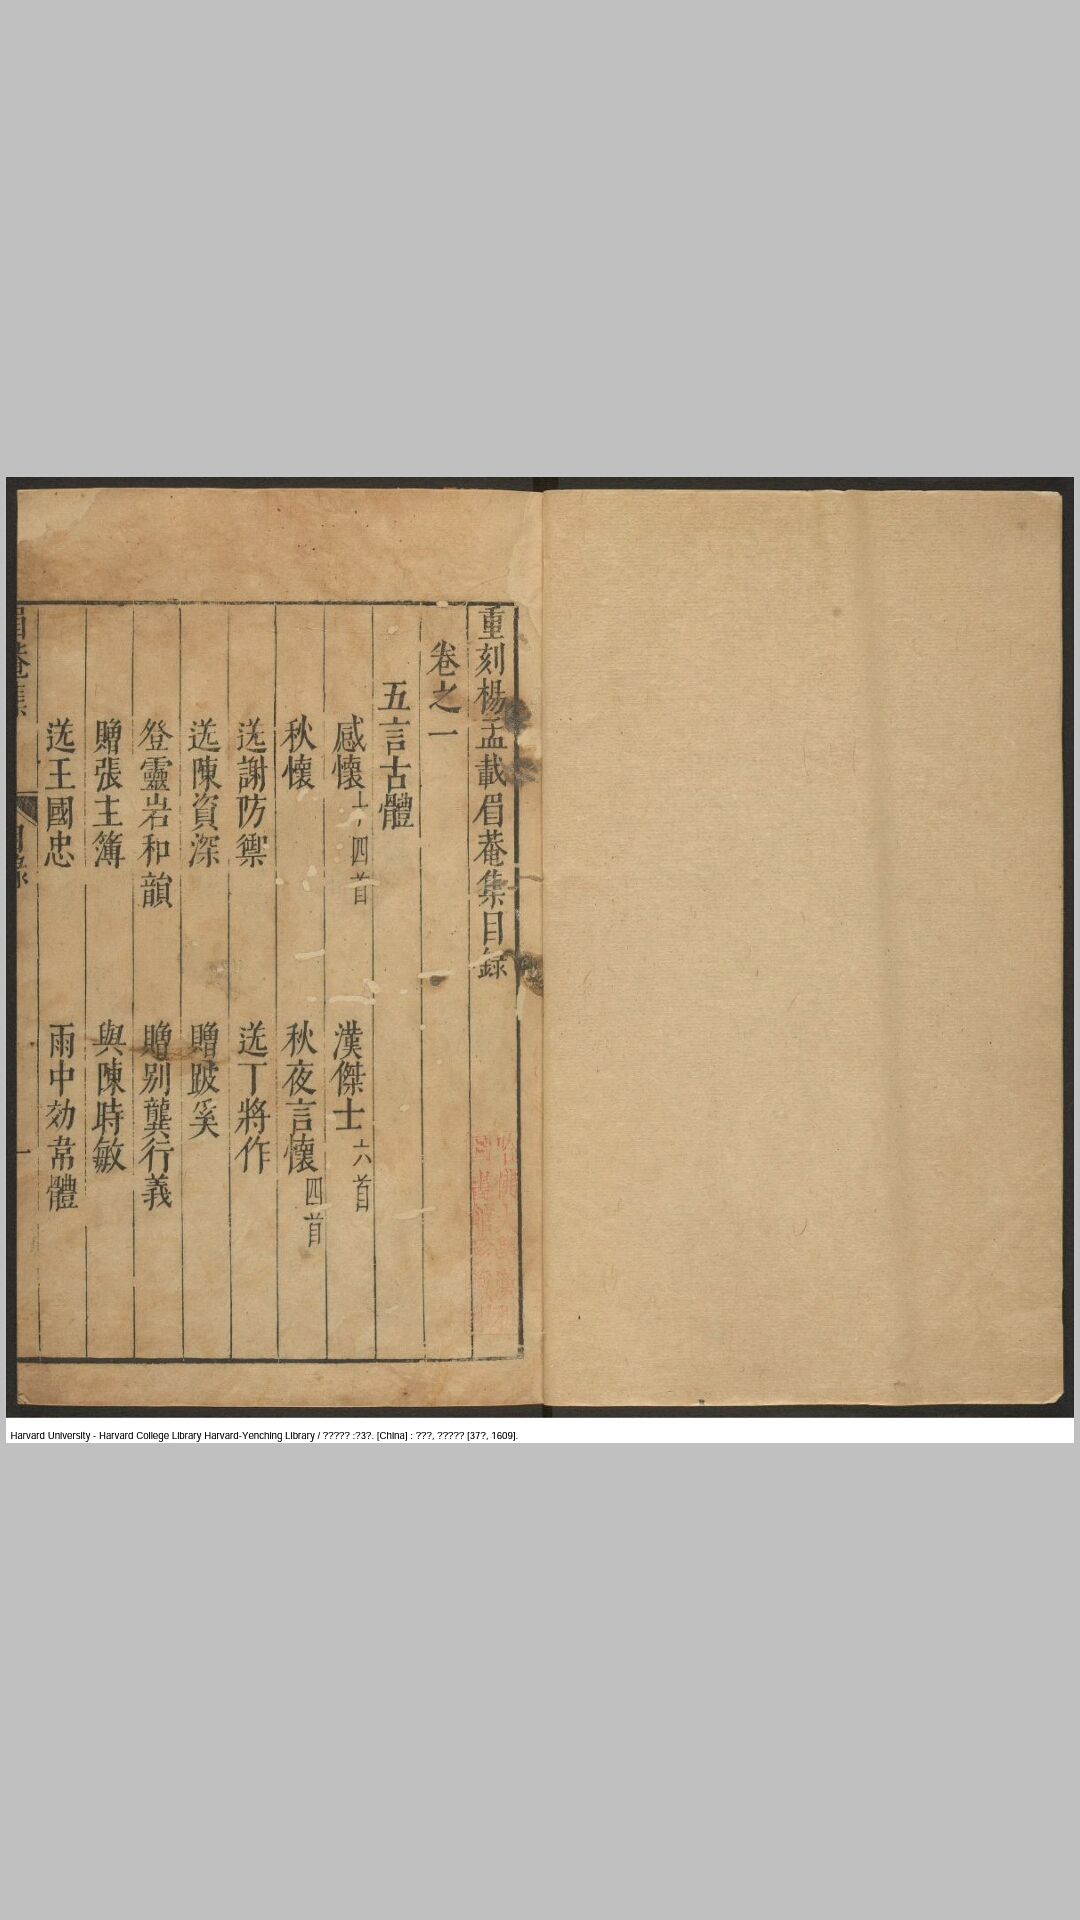 重刻楊孟載眉菴集目錄
卷之一
五言古體
感懷十四首 漢傑士六首
秋懷 秋夜言懷四首
送謝防禦 送丁將作
送陳資深 贈跛奚
登靈岩和韻 贈別龔行義
贈張主簿 與陳時敏
送王國忠 雨中効韋體
眉菴集 目錄 一
Harvard University - Harvard College Library Harvard-Yenching Library / ????? :?3?. [China] : ???, ????? [37?, 1609].